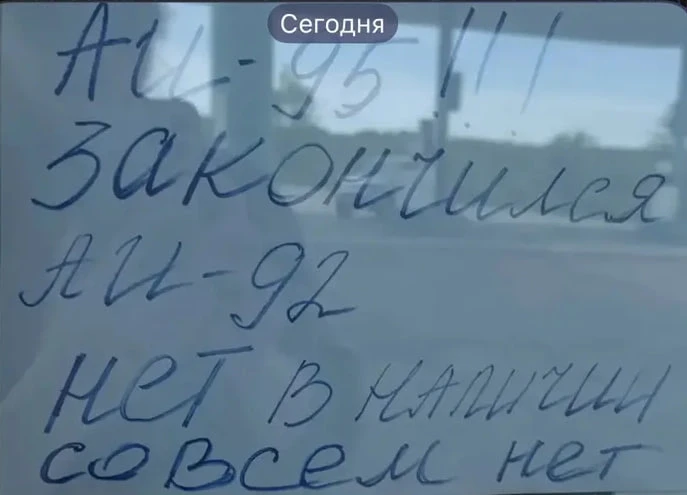 Сегодня
АИ-95 !!!
закончился
АИ-92
нет в наличии
совсем нет